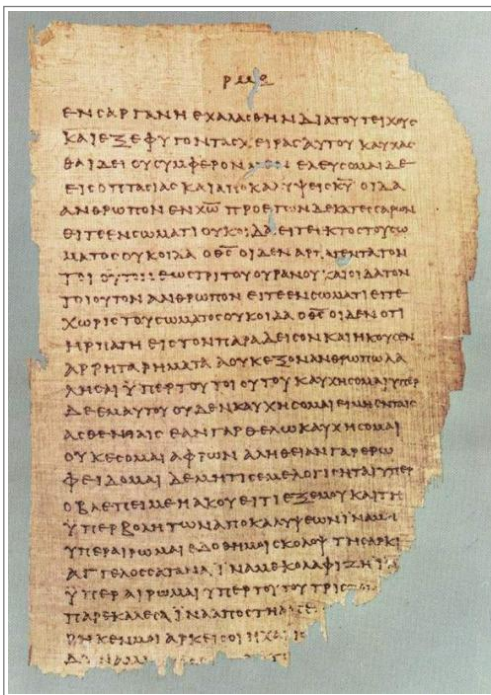 ЄΝϹΑΡΓΑΝΗ ЄΧΑΛΑϹΘΗΝ ΔΙΑΤΟΥΤЄΙΧΟΥϹ
ΚΑΙЄΞЄΦΥΓΟΝΤΑϹΧЄΙΡΑϹΑΥΤΟΥ ΚΑΥΧΑϹ
ΘΑΙΔЄΙ ΟΥϹΥΜΦЄΡΟΝ ЄΛЄΥϹΟΜΑΙΔЄ
ЄΙϹΟΠΤΑϹΙΑϹ ΚΑΙΑΠΟΚΑΛΥΨЄΙϹΚ̅Υ̅ ΟΙΔΑ
ΑΝΘΡΩΠΟΝ ЄΝΧ̅Ω̅ ΠΡΟЄΤΩΝΔЄΚΑΤЄϹϹΑΡΩΝ
ЄΙΤЄЄΝϹΩΜΑΤΙΟΥΚΟΙΔΑ ЄΙΤЄΙΚΤΟϹΤΟΥϹΩ
ΜΑΤΟϹΟΥΚΟΙΔΑ ΟΘ̅Ϲ̅ ΟΙΔЄΝ ΑΡΠΑΓЄΝΤΑΤΟΝ
ΤΟΙΟΥΤΟΝ ЄΩϹΤΡΙΤΟΥΟΥΡΑΝΟΥ ΚΑΙΟΙΔΑΤΟΝ
ΤΟΙΟΥΤΟΝ ΑΝΘΡΩΠΟΝ ЄΙΤЄЄΝϹΩΜΑΤΙЄΙΤЄ
ΧΩΡΙϹΤΟΥϹΩΜΑΤΟϹΟΥΚΟΙΔΑ ΟΘ̅Ϲ̅ ΟΙΔЄΝΟΤΙ
ΗΡΠΑΓΗ ЄΙϹΤΟΝΠΑΡΑΔЄΙϹΟΝΚΑΙΗΚΟΥϹЄΝ
ΑΡΡΗΤΑΡΗΜΑΤΑ ΑΟΥΚЄΞΟΝΑΝΘΡΩΠΩΛΑ
ΛΗϹΑΙ ΫΠЄΡΤΟΥΤΟΙΟΥΤΟΥ ΚΑΥΧΗϹΟΜΑΙΫΠЄΡ
ΔЄЄΜΑΥΤΟΥ ΟΥΔЄΝΚΑΥΧΗϹΟΜΑΙЄΙΜΗЄΝΤΑΙϹ
ΑϹΘЄΝЄΙΑΙϹ ЄΑΝΓΑΡΘЄΛΩΚΑΥΧΗϹΟΜΑΙ
ΟΥΚЄϹΟΜΑΙ ΑΦΡΩΝ ΑΛΗΘЄΙΑΝΓΑΡЄΡΩ
ΦЄΙΔΟΜΑΙ ΔЄΜΗΤΙϹЄΜЄΛΟΓΙϹΗΤΑΙΫΠЄΡ
ΟΒΛЄΠЄΙΜЄΗΑΚΟΥЄΙΤΙЄΞЄΜΟΥΚΑΙΤΗ
ΫΠЄΡΒΟΛΗΤΩΝΑΠΟΚΑΛΥΨЄΩΝΪΝΑΜΗ
ΫΠЄΡΑΙΡΩΜΑΙЄΔΟΘΗΜΟΙϹΚΟΛΟΨ ΤΗϹΑΡΚΙ
ΑΓΓЄΛΟϹϹΑΤΑΝΑ ΪΝΑΜЄΚΟΛΑΦΙΖΗ
ΫΠЄΡΑΙΡΩΜΑΙ ΫΠЄΡΤΟΥΤΟΥ ΤΡΙϹ
ΠΑΡЄΚΑΛЄϹΑ ΪΝΑΑΠΟϹΤΗ
ΡΗΚЄΝΜΟΙ ΑΡΚЄΙϹΟΙΗΧΑΡΙϹ